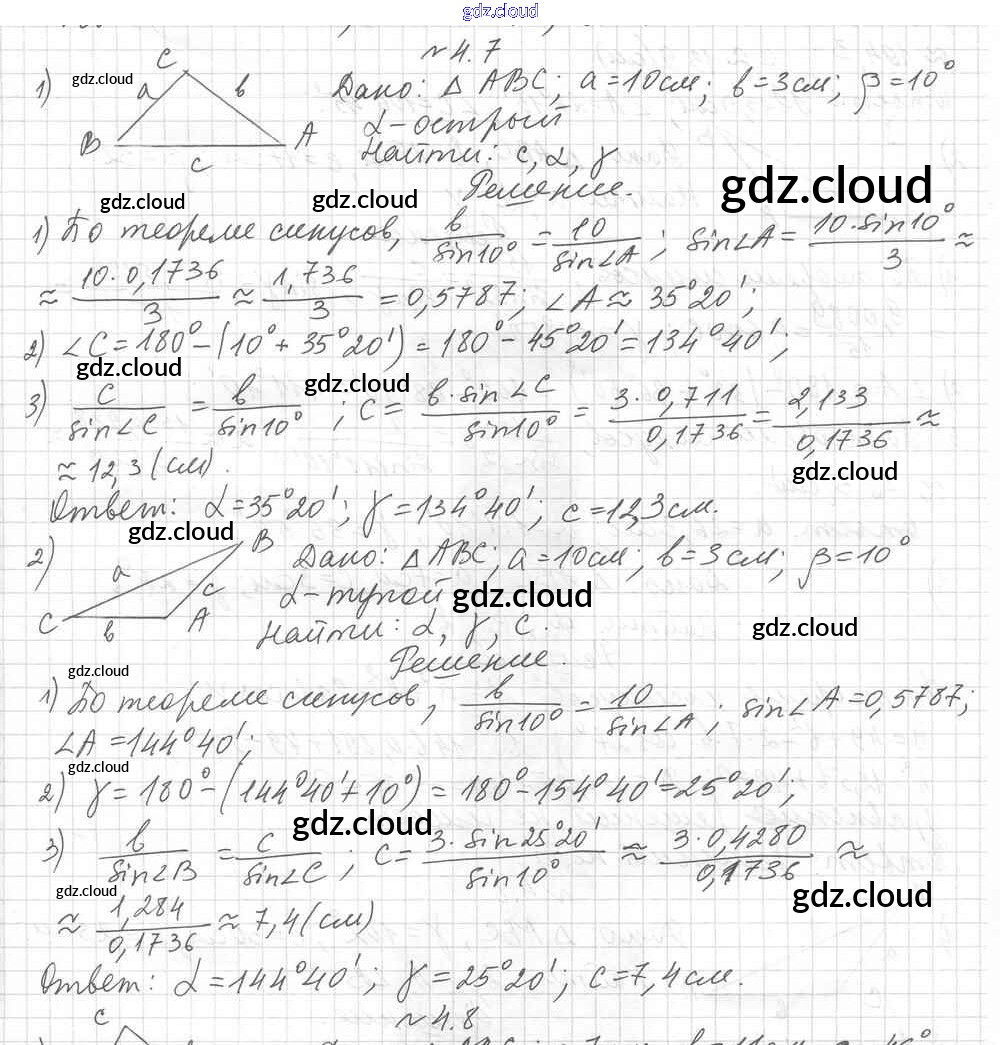 gdz.cloud
N 4.7
1) C a b B A c gdz.cloud Дано: △ ABC; a=10см; b=3см; β=10°
α-острый
Найти: c, α, γ
gdz.cloud gdz.cloud Решение. gdz.cloud
1) По теореме синусов, b/sin10° = 10/sin∠A; sin∠A = 10·sin10°/3 ≈
≈ 10·0,1736/3 ≈ 1,736/3 = 0,5787; ∠A ≈ 35°20';
2) ∠C = 180° - (10° + 35°20') = 180° - 45°20' = 134°40';
gdz.cloud gdz.cloud
3) c/sin∠C = b/sin10°; c = b·sin∠C/sin10° = 3·0,711/0,1736 = 2,133/0,1736 ≈
≈ 12,3 (см). gdz.cloud
Ответ: α = 35°20'; γ = 134°40'; c = 12,3 см.
gdz.cloud
2) B a c C b A Дано: △ ABC; a=10см; b=3см; β=10°
α-тупой gdz.cloud
Найти: α, γ, c. gdz.cloud
gdz.cloud Решение.
1) По теореме синусов, b/sin10° = 10/sin∠A; sin∠A = 0,5787;
∠A = 144°40';
gdz.cloud
2) γ = 180° - (144°40' + 10°) = 180° - 154°40' = 25°20';
gdz.cloud
3) b/sin∠B = c/sin∠C; c = 3·sin25°20'/sin10° ≈ 3·0,4280/0,1736 ≈
gdz.cloud gdz.cloud
≈ 1,284/0,1736 ≈ 7,4 (см)
Ответ: α = 144°40'; γ = 25°20'; c = 7,4 см.
N 4.8
C